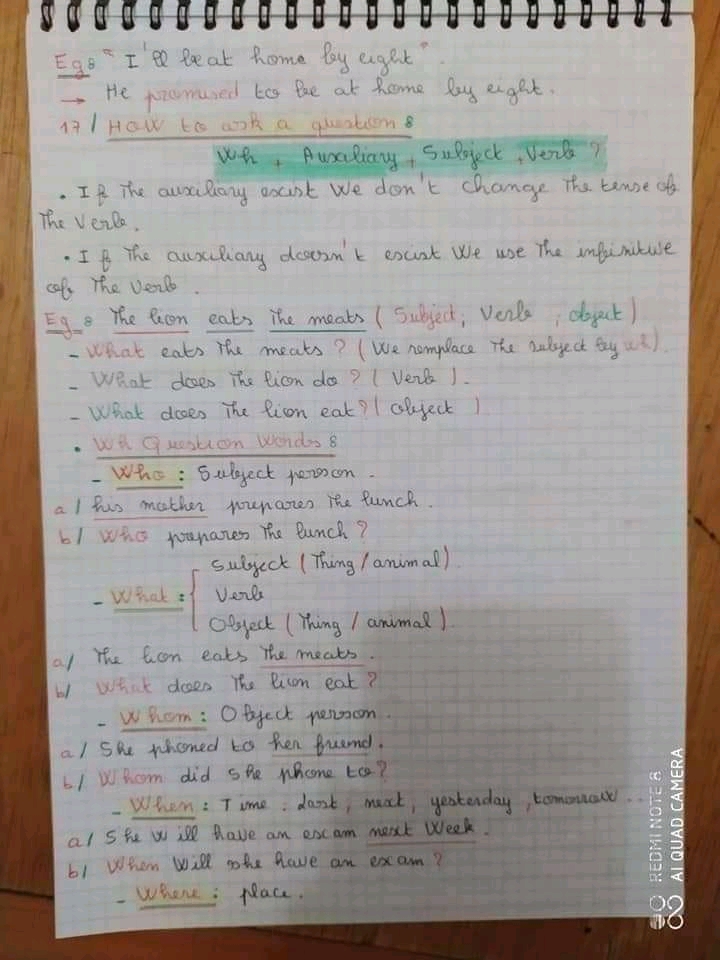 Eg: "I'll be at home by eight".
→ He promised to be at home by eight.
17/ How to ask a question:
Wh + Auxiliary + Subject + Verb?
• If The auxiliary exist We don't change The tense of
The Verb.
• If The auxiliary doesn't exist We use The infinitive
of The Verb.
Eg: The lion eats The meats (Subject; Verb ; object)
- What eats The meats? (We remplace The subject by wh).
- What does The lion do? (Verb).
- What does The lion eat? (object)
• Wh Question Words:
- Who: Subject person.
a/ his mother prepares The lunch.
b/ Who prepares The lunch?
- What: { Subject (Thing/animal).
Verb
Object (Thing / animal).
a/ The lion eats The meats.
b/ What does The lion eat?
- Whom: Object person.
a/ She phoned to her friend.
b/ Whom did She phone to?
- When: Time: last, next, yesterday, tomorrow...
a/ She Will have an exam next Week.
b/ When Will she have an exam?
- Where: place.
REDMI NOTE 8
AI QUAD CAMERA